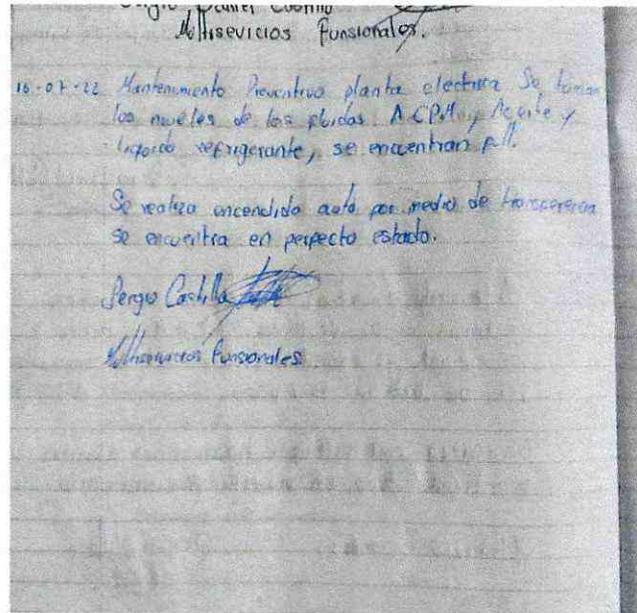 Sergio Daniel Castillo
Multisevicios Funsionales.
16-07-22 Mantenimiento Preventivo planta electrica Se toman
los niveles de los fluidos ACPM, Aceite y
liquido refrigerante, se encuentran full.
Se realiza encendido auto por medio de transferencia
se encuentra en perfecto estado.
Sergio Castillo
Multiservicios Funsionales.